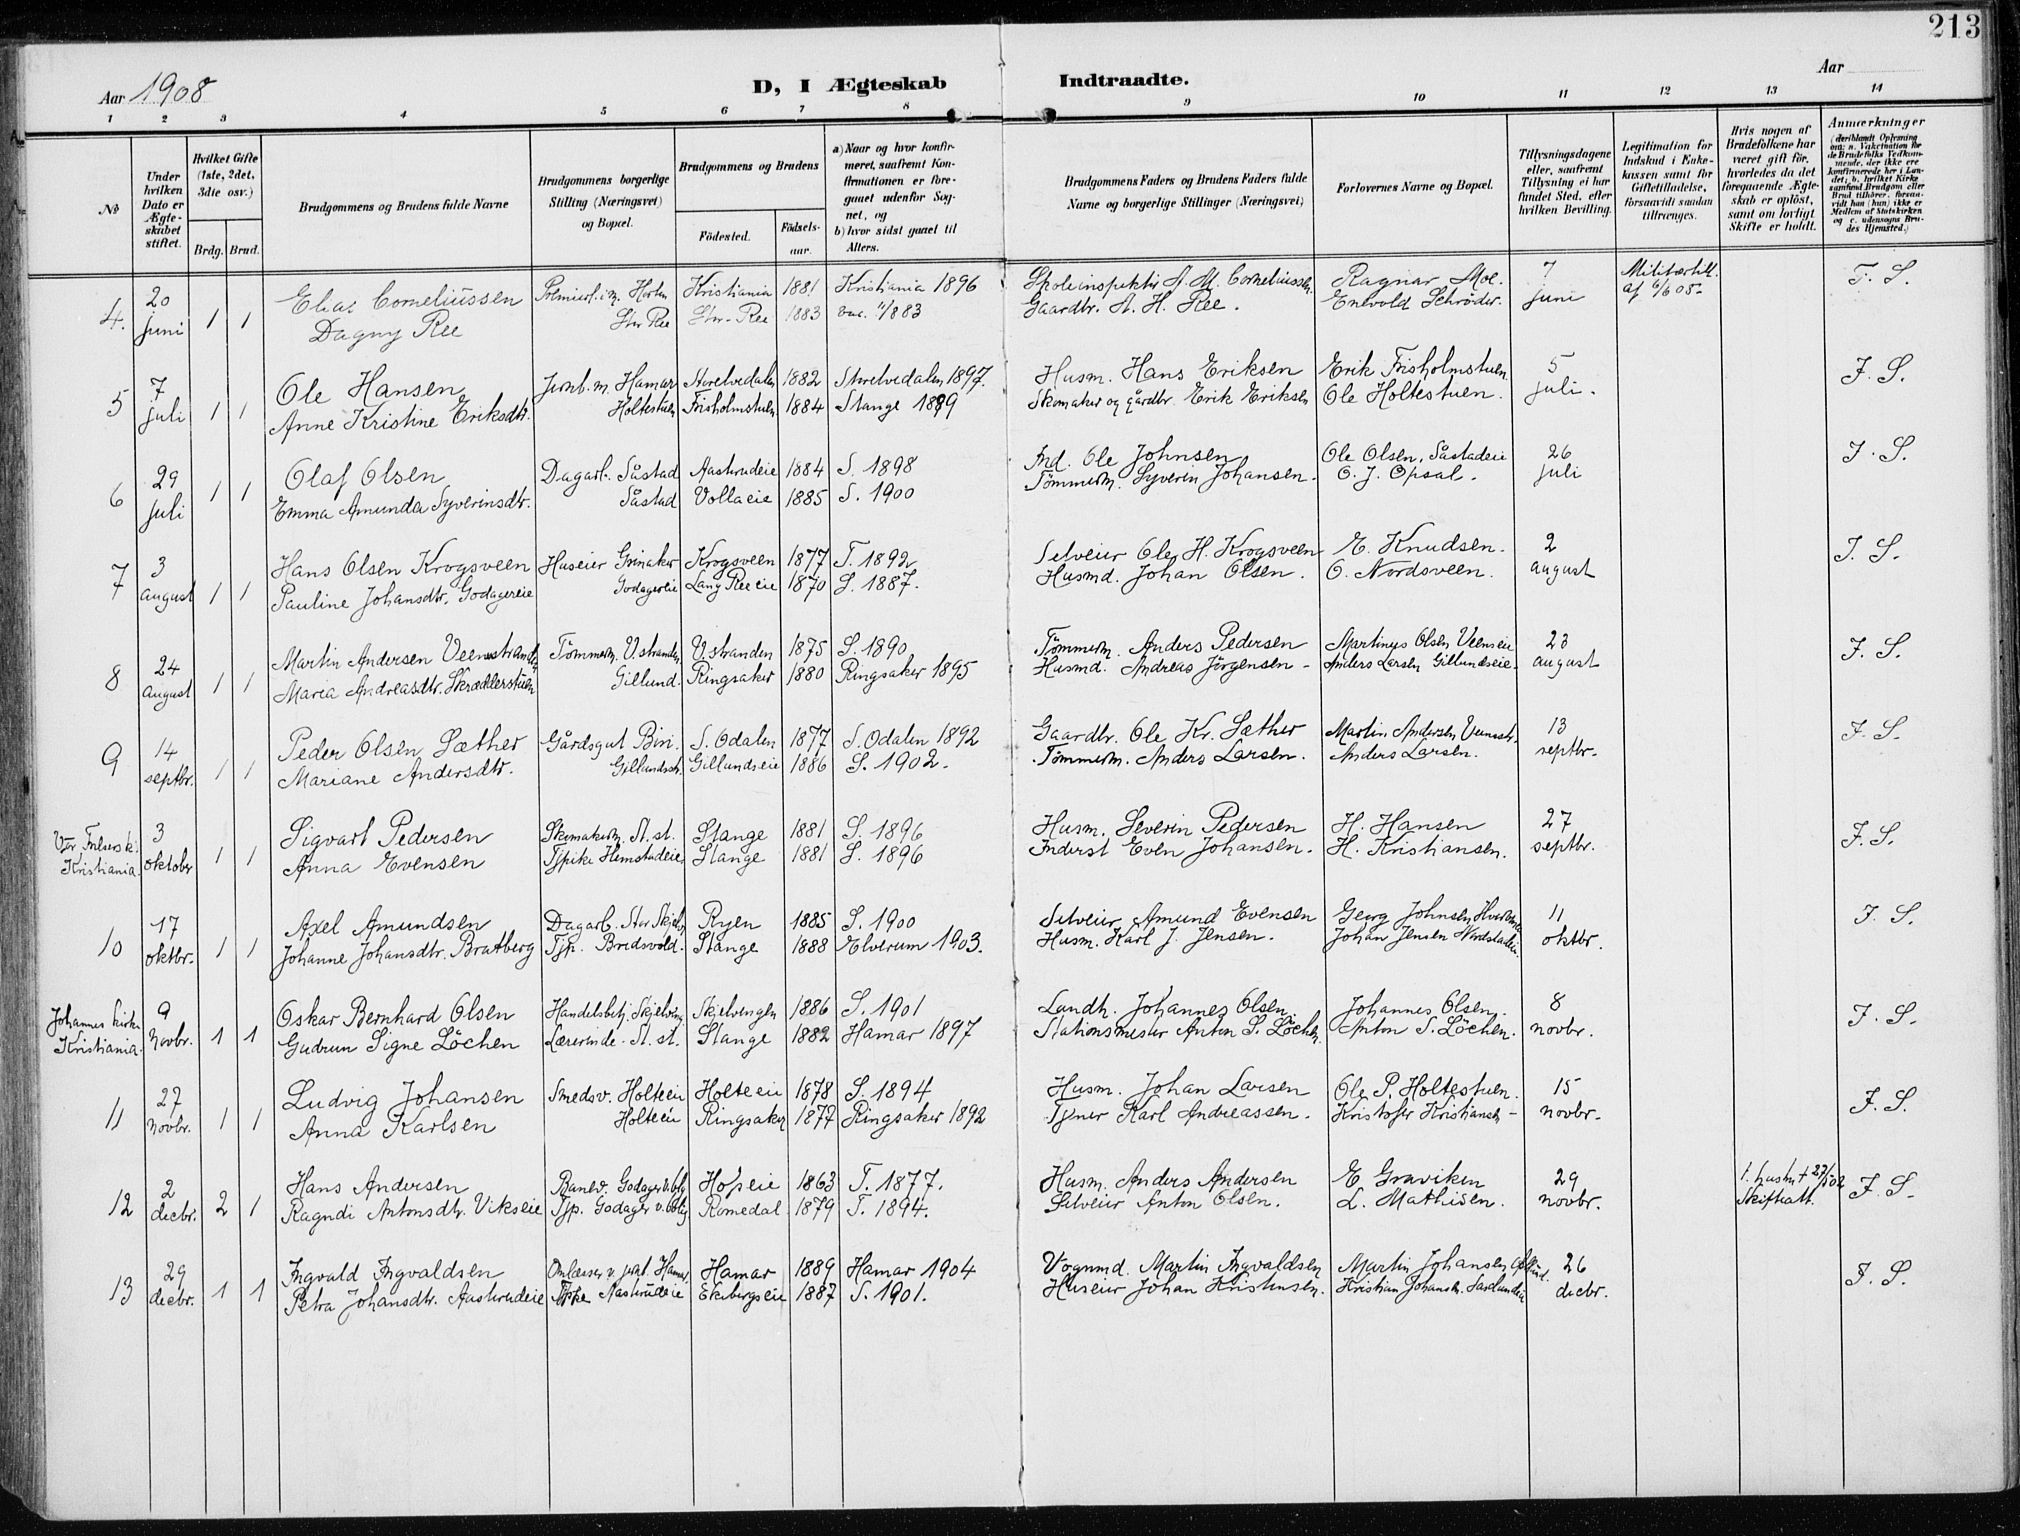 213
Aar 1908
D, I Ægteskab Indtraadte.
Aar
1 2 3 4 5 6 7 8 9 10 11 12 13 14
№
Under hvilken Dato er Ægteskabet stiftet.
Hvilket Gifte (1ste, 2det, 3die osv.)
Brdg. Brud.
Brudgommens og Brudens fulde Navne
Brudgommens borgerlige Stilling (Næringsvei) og Bopæl.
Brudgommens og Brudens
Födested. Födselsaar.
a) Naar og hvor konfirmeret, saafremt Konfirmationen er foregaaet udenfor Sognet, og
b) hvor sidst gaaet til Alters.
Brudgommens Faders og Brudens Faders fulde Navne og borgerlige Stillinger (Næringsvei)
Forlovernes Navne og Bopæl.
Tillysningsdagene eller, saafremt Tillysning ei har fundet Sted, efter hvilken Bevilling.
Legitimation for Indskud i Enkekassen samt for Giftetilladelse, forsaavidt saadan tiltrænges.
Hvis nogen af Brudefolkene har været gift för, hvorledes da det foregaaende Ægteskab er oplöst, samt om lovligt Skifte er holdt.
Anmærkninger
(deriblandt Oplysning om: a. Vakcination for de Brudefolks Vedkommende, der ikke ere konfirmerede her i Landet; b. hvilket Kirkesamfund Brudgom eller Brud tilhörer, forsaavidt han (hun) ikke er Medlem af Statskirken og c. udensogns Brudes Hjemsted.)
4. 20 juni 1 1 Elias Corneliussen Premierl. i m. Horten Kristiania 1881 Kristiania 1896 Skoleinspektör A. M. Corneliussen. Ragnar Moe. 7 juni Militærtill. af 6/6 05- F. S.
Dagny Ree Str Ree Str. Ree 1883 vac. 11/883 Gaardbr. A. H. Ree. Enevold Schröder.
5 7 juli 1 1 Ole Hansen Jernb.m. Hamar Storelvedalen 1882 Storelvedalen 1897. Husm. Hans Eriksen Erik Frisholmstuen. 5 juli. F. S.
Anne Kristine Eriksdtr. Holtestuen Frisholmstuen 1884 Stange 1899 Skomaker og gårdbr. Erik Eriksen Ole Holtestuen.
6 29 juli 1 1 Olaf Olsen Dagarb. Såstad Aasterudeie 1884 S. 1898 Ind. Ole Johnsen Ole Olsen, Såstadeie 26 juli F. S.
Emma Amunda Syverinsdtr. Såstad Vollaeie 1885 S. 1900 Tömmerm. Syverin Johansen. O. J. Opsal.
7 3 august 1 1 Hans Olsen Krogsveen Huseier Grinaker Krogsveen 1877 T. 1892 Selveier Ole H. Krogsveen E. Knudsen. 2 august F. S.
Pauline Johansdtr. Godagereie Godagereie Lang Ree eie 1870 S. 1887. Husmd. Johan Olsen. O. Nordsveen.
8 24 august 1 1 Martin Andersen Veenstranden Tömmerm. V.stranden V.stranden 1875 S. 1890 Tömmerm. Anders Pedersen Martinus Olsen Veeneie 23 august F. S.
Maria Andreasdtr. Skrædderstuen Gillund. Ringsaker 1880 Ringsaker 1895 Husmd. Andreas Jörgensen - Anders Larsen Gillundseie.
9 14 septbr. 1 1 Peder Olsen Sæther Gårdsgut Biri. S. Odalen 1877 S. Odalen 1892 Gaardbr. Ole Kr. Sæther Martin Andersen Veenstr. 13 septbr. F. S.
Mariane Andersdtr. Gillundseie 1886 S. 1902. Tömmerm. Anders Larsen. Anders Larsen.
Kristiania. 3 oktobr 1 1 Sigvart Pedersen Skomakerm. St. st. Stange 1881 S. 1896 Husm. Severin Pedersen H. Hansen 27 septbr. F. S.
Anna Evensen Tjpike Hemstadeie Stange 1881 S. 1896 Inderst Even Johansen. H. Kristiansen.
10 17 oktbr. 1 1 Axel Amundsen Dagarb. Ryen 1885 S. 1900 Selveier Amund Evensen Georg Johnsen 11 oktbr. F. S.
Johanne Johansdtr. Bratberg Tjp. Bredsvold. Stange 1888 Elverum 1903. Husm. Karl J. Jensen. Johan Jensen Nordstadeie.
Johannes kirke Kristiania. 9 Novbr. 1 1 Oskar Bernhard Olsen Handelsbetj. Skjelveng. Skjelvengen 1886 S. 1901 Landh. Johannes Olsen. Johannes Olsen. 8 novbr. F. S.
Gudrun Signe Löchen Lærerinde. St. st. Stange 1882 Hamar 1897 Stationsmester Anton S. Löchen. Anton S. Löchen.
11 27 novbr. 1 1 Ludvig Johansen Smedsv. Holteeie Holteeie 1878 S. 1894 Husm. Johan Larsen Ole P. Holtestuen. 15 novbr. F. S.
Anna Karlsen Holteeie Ringsaker 1877 Ringsaker 1892 Tjener Karl Andreassen. Kristofer Kristiansen -
12 2 decbr. 2 1 Hans Andersen Banev. Hofseie 1863 T. 1877. Husm. Anders Andersen E. Graviken 29 novbr. 1. hustr. † 27/5 02 Skifteatt. F. S.
Ragndi Antonsdtr. Vikseie Tjp. Godager v. bolig Romedal 1879 T. 1894. Selveier Anton Olsen. L. Mathisen.
13 29 decbr. 1 1 Ingvald Ingvaldsen Omlæsser Hamar. Hamar 1889 Hamar 1904 Vognmd. Martin Ingvaldsen Martin Johansen 26 decbr. F. S.
Petra Johansdtr. Aasterudeie Aasterudeie Ekebergseie 1887 S. 1901. Huseier Johan Kristensen. Kristian Johansen.